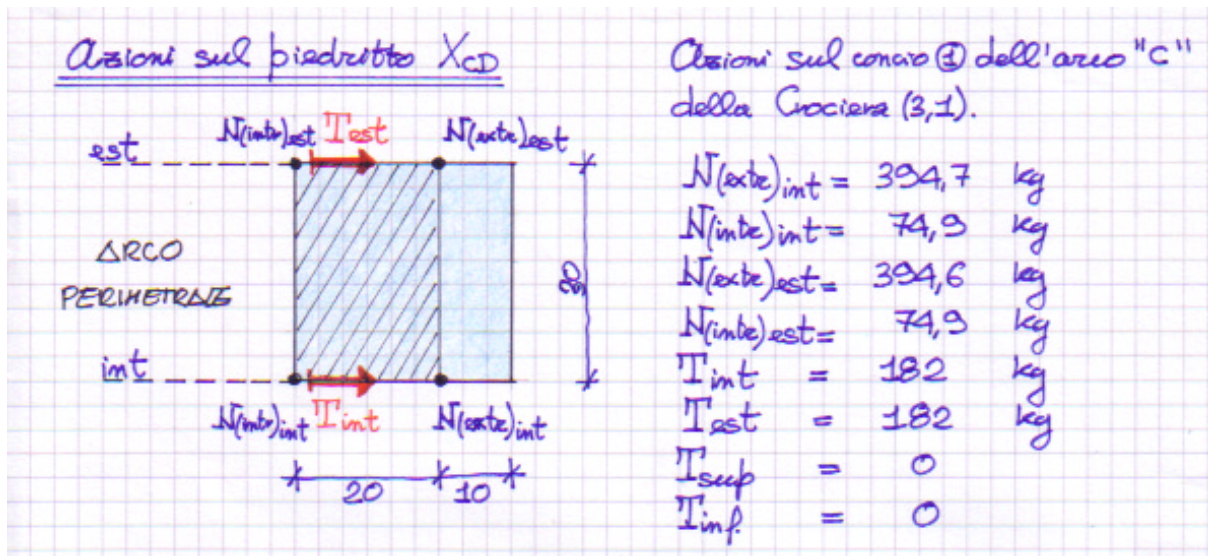 Azioni sul piedritto X_CD
est
N(intr)est T est N(extr)est
ARCO
PERIMETRALE
30
int
N(intr)int T int N(extr)int
20 10
Azioni sul concio ① dell'arco "C"
della Crociera (3,1).
N(extr)int = 394,7 kg
N(intr)int = 74,9 kg
N(extr)est = 394,6 kg
N(intr)est = 74,9 kg
T int = 182 kg
T est = 182 kg
T sup = 0
T inf. = 0